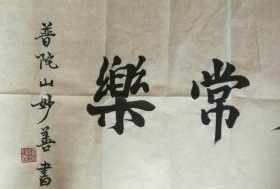 常樂
普陀山妙善書